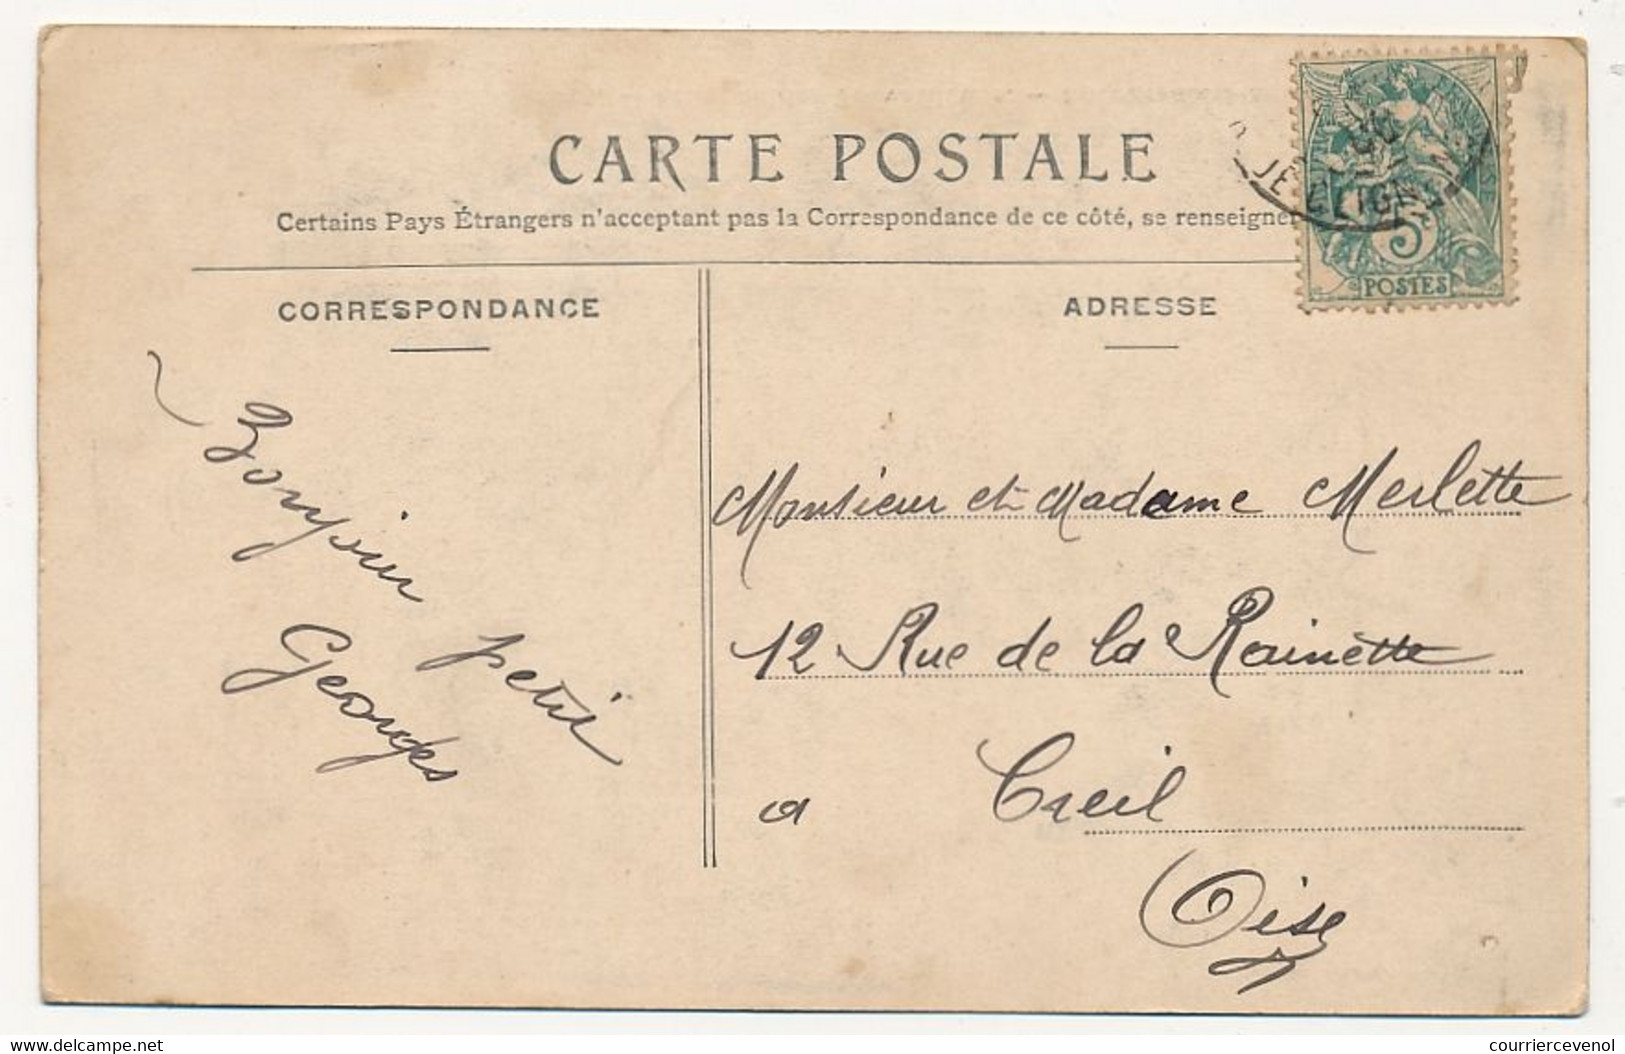 CARTE POSTALE
Certains Pays Étrangers n'acceptent pas la Correspondance de ce côté, se renseigner
CORRESPONDANCE
Bonjour petit
Georges
ADRESSE
5
POSTES
Monsieur et Madame Merlette
12 Rue de la Rainette
a Creil
Oise
www.delcampe.net
courriercevenol